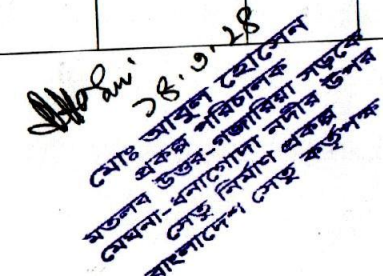 ১৪.৩.২৪
মোঃ আবুল হোসেন
প্রকল্প পরিচালক
মতলব উত্তর-গজারিয়া সড়কে
মেঘনা-ধনাগোদা নদীর উপর
সেতু নির্মাণ প্রকল্প
বাংলাদেশ সেতু কর্তৃপক্ষ